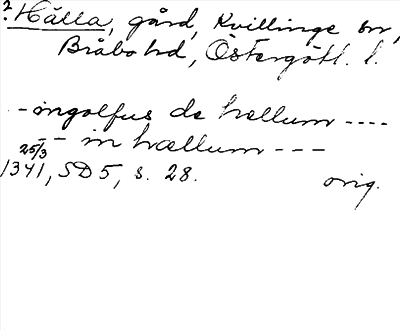 ? Hälla, gård, Kvillinge sn,
Bråbo hd, Östergötl. l.
- ingolfus de hællum ----
-- in hællum ---
25/3
1341, SD 5, s. 28. orig.